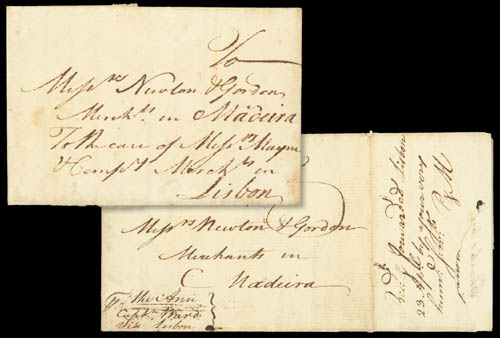 To
Messrs Newton & Gordon
Merchts in Madeira
To the care of Messrs Mayne
& Compy Merchts in
Lisbon
Messrs Newton & Gordon
Merchants in
Madeira
Pr the Ann
Captn Ward
via Lisbon
forwarded Lisbon
23 by your